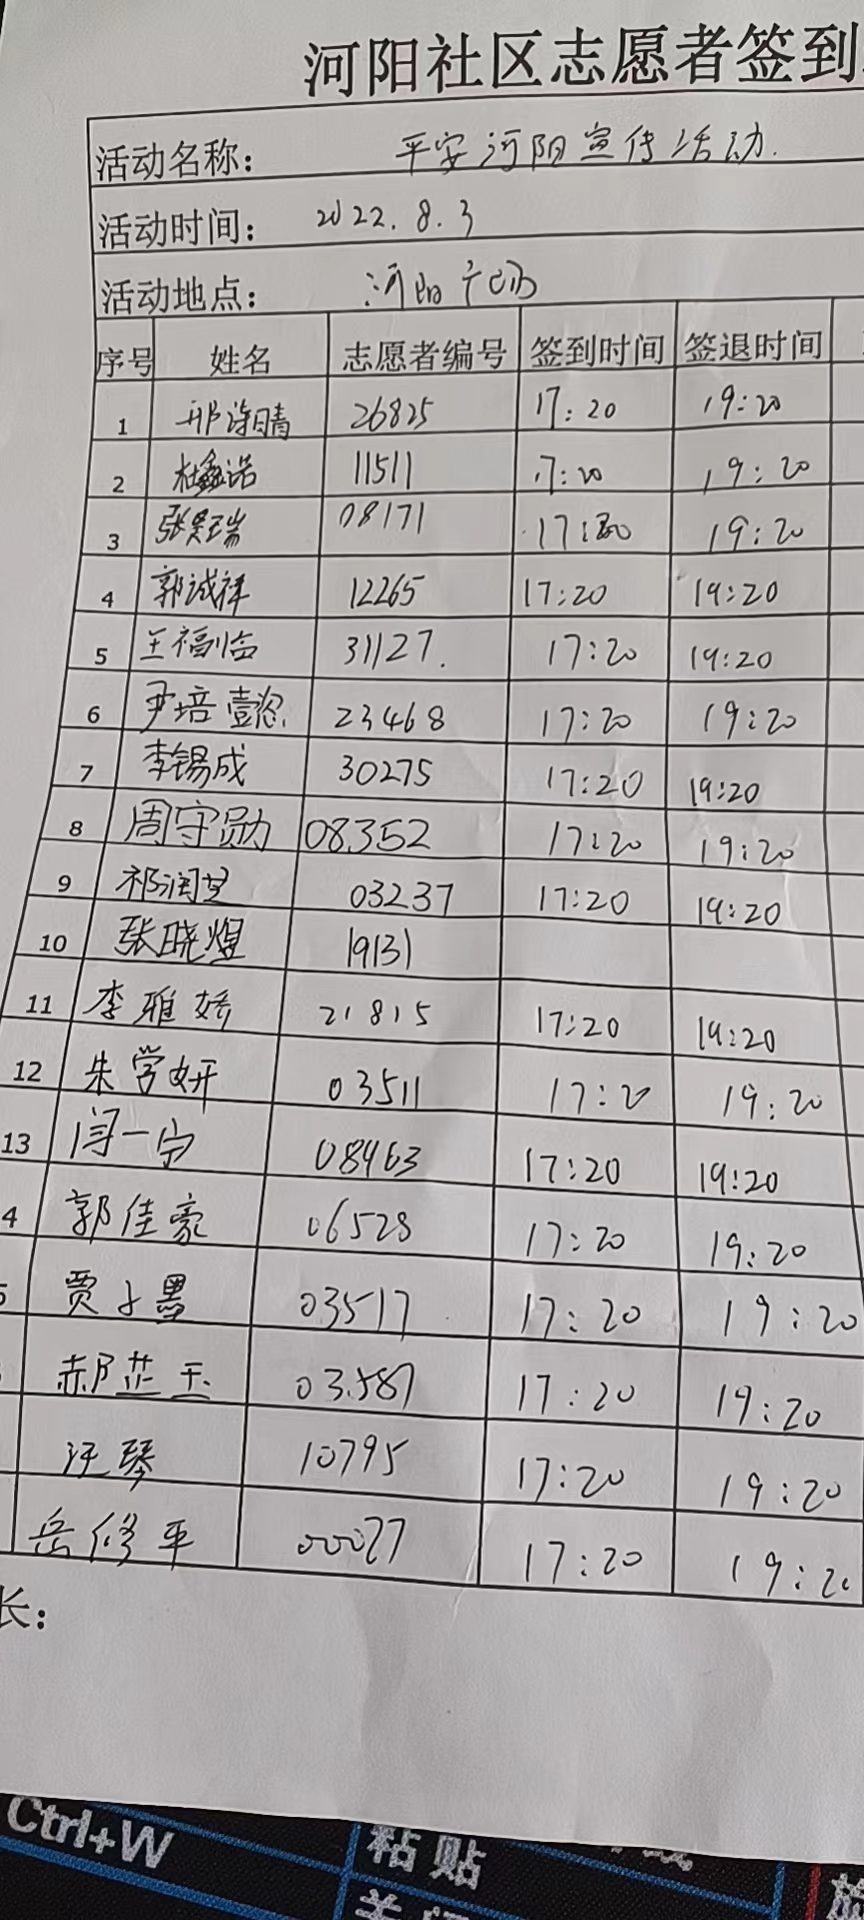 河阳社区志愿者签到
活动名称： 平安河阳宣传活动.
活动时间： 2022.8.3
活动地点： 河阳广场
序号 姓名 志愿者编号 签到时间 签退时间
1 邢诗晴 26825 17:20 19:20
2 杜鑫诺 11511 17:20 19:20
3 张 瑞 08171 17:20 19:20
4 郭诚祥 12265 17:20 19:20
5 王福临 31127. 17:20 19:20
6 尹培懿 23468 17:20 19:20
7 李锡成 30275 17:20 19:20
8 周守勋 08352 17:20 19:20
9 祁润芝 03237 17:20 19:20
10 张晓煜 19131
11 李雅娇 21815 17:20 19:20
12 朱学妍 03511 17:20 19:20
13 闫一宁 08463 17:20 19:20
4 郭佳豪 06528 17:20 19:20
5 贾子墨 03517 17:20 19:20
郝芷玉 03587 17:20 19:20
汪琴 10795 17:20 19:20
岳修平 00077 17:20 19:20
长：
Ctrl+W 粘贴